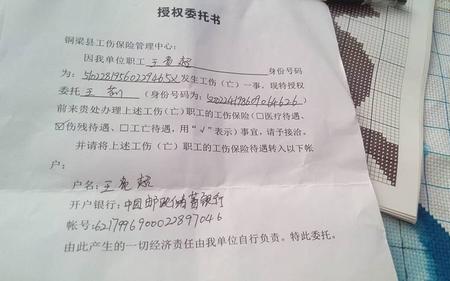 授权委托书
铜梁县工伤保险管理中心：
因我单位职工王亮超身份号码
为：51022819560229465X发生工伤（亡）一事，现特授权
委托王（身份号码为：500224198609064626）
前来贵处办理上述工伤（亡）职工的工伤保险（□医疗待遇、
☑伤残待遇、□工亡待遇，用“√”表示）事宜，请予接洽。
并请将上述工伤（亡）职工的工伤保险待遇转入以下帐
户：
户名：王亮超
开户银行：中国邮政储蓄银行
帐号：6217996900022897046
由此产生的一切经济责任由我单位自行负责。特此委托。